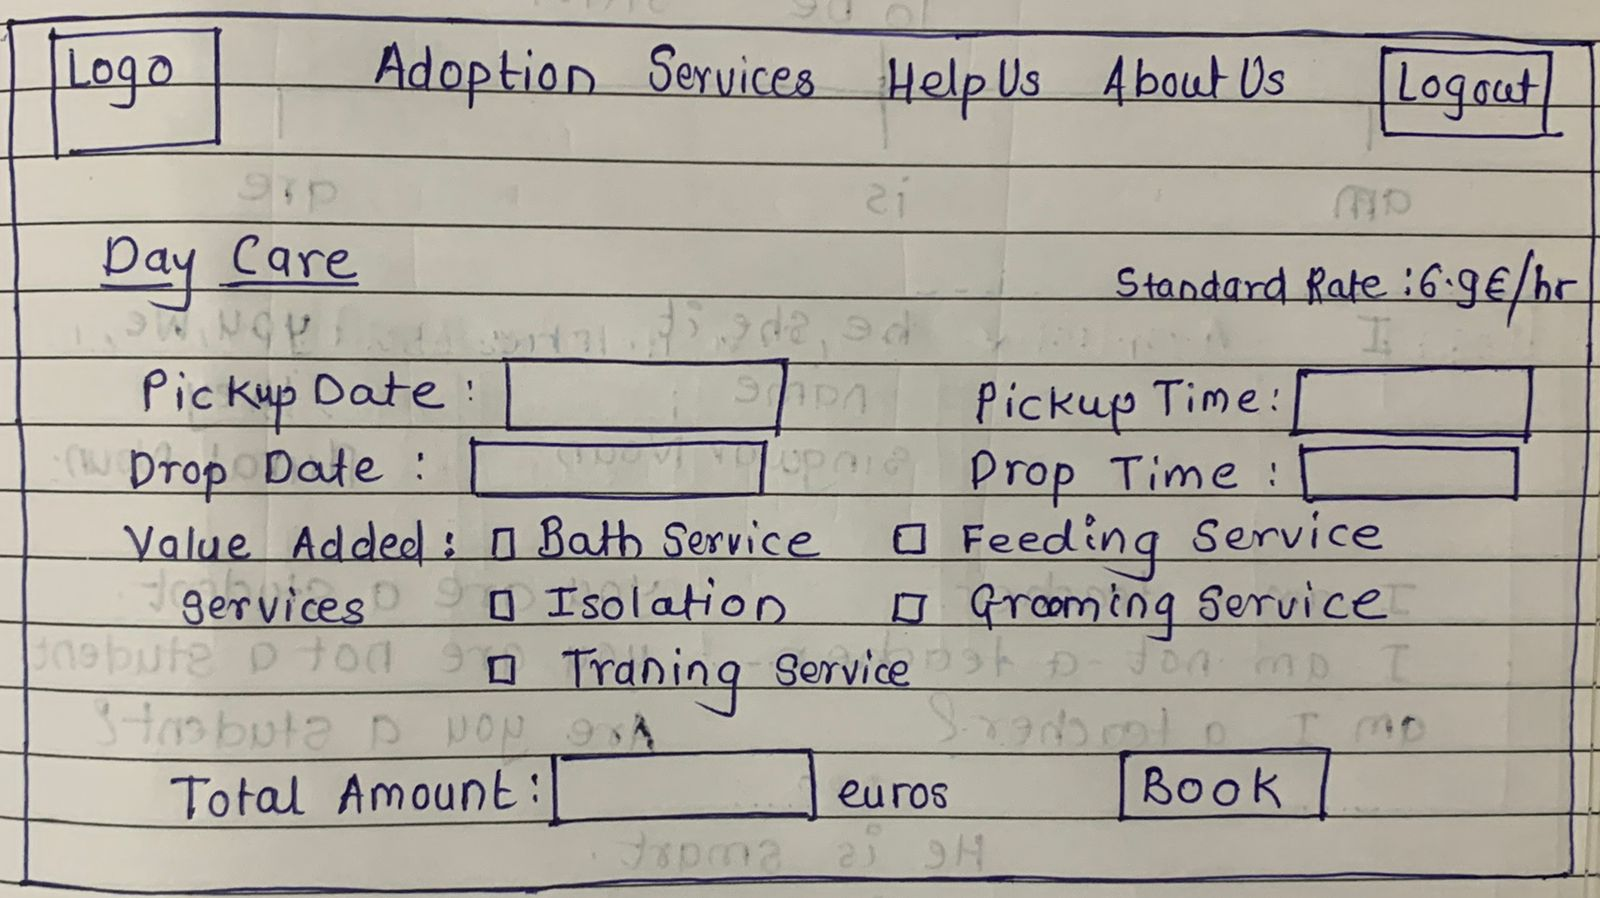 Logo Adoption Services Help Us About Us Logout
Day Care
Standard Rate : 6.9€/hr
Pickup Date : Pickup Time :
Drop Date : Drop Time :
Value Added : Bath Service Feeding Service
services Isolation Grooming Service
Traning Service
Total Amount : euros BOOK